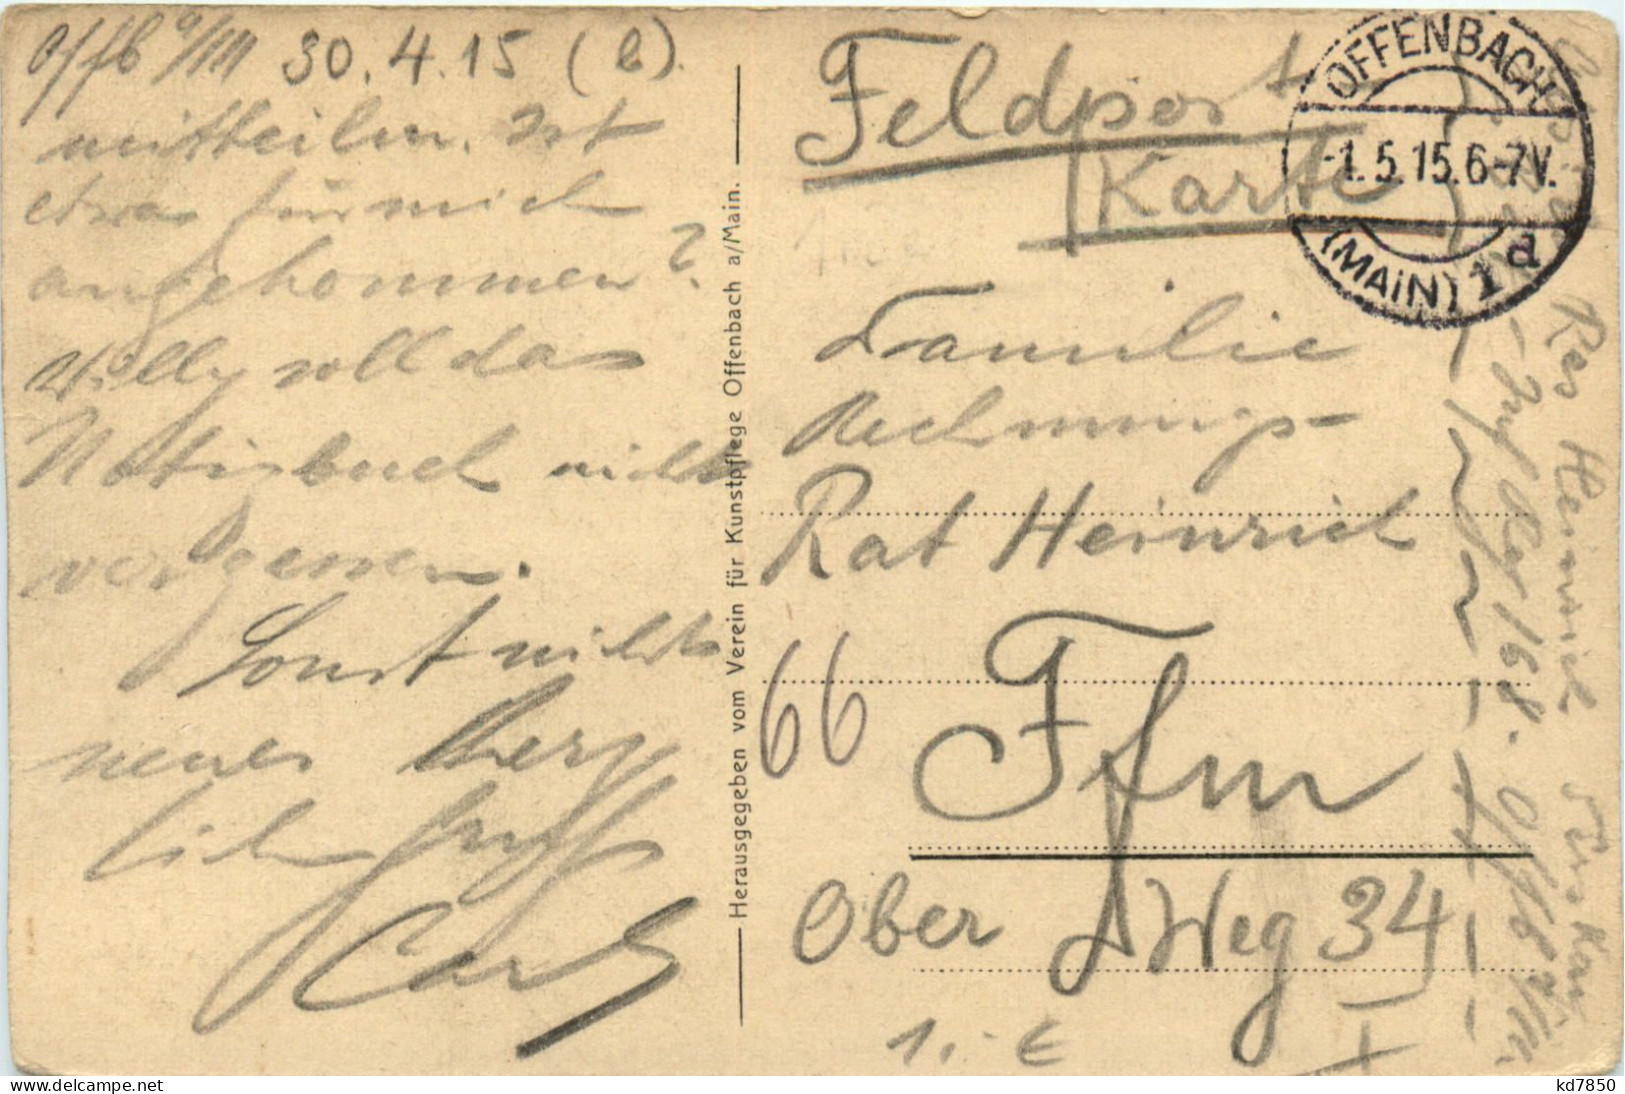 Offb a/M 30.4.15 (b).
mitteilen. Ist
etwas für mich
angekommen?
Willy soll das
Notizbuch nicht
vergessen.
Sonst nichts
neues. Herz
lichen Gruß
Carl
Herausgegeben vom Verein für Kunstpflege Offenbach a/Main.
Feldpost
Karte
OFFENBACH
-1.5.15.6-7V.
(MAIN) 1 d
Familie
Rechnungs-
Rat Heinrich
66
Ffm
Ober Weg 34
I
1.- €
Res Heinrich
Inf Rg 168. Offb a/M.
kd7850